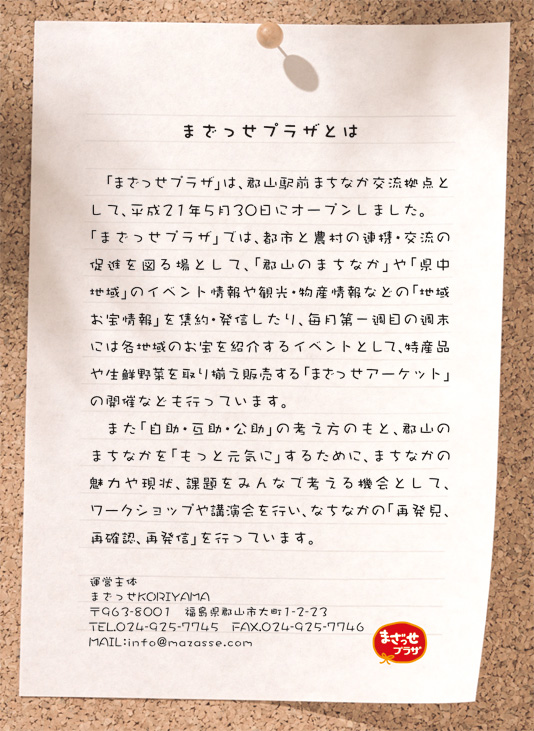 まざっせプラザとは
「まざっせプラザ」は、郡山駅前まちなか交流拠点と
して、平成21年5月30日にオープンしました。
「まざっせプラザ」では、都市と農村の連携・交流の
促進を図る場として、「郡山のまちなか」や「県中
地域」のイベント情報や観光・物産情報などの「地域
お宝情報」を集約・発信したり、毎月第一週目の週末
には各地域のお宝を紹介するイベントとして、特産品
や生鮮野菜を取り揃え販売する「まざっせアーケット」
の開催なども行っています。
また「自助・互助・公助」の考え方のもと、郡山の
まちなかを「もっと元気に」するために、まちなかの
魅力や現状、課題をみんなで考える機会として、
ワークショップや講演会を行い、なちなかの「再発見、
再確認、再発信」を行っています。
運営主体
まざっせKORIYAMA
〒963-8001 福島県郡山市大町1-2-23
TEL.024-925-7745 FAX.024-925-7746
MAIL:info@mazasse.com
まざっせ
プラザ